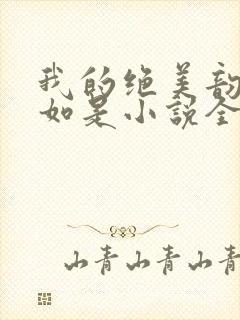 我的绝美韵
如是小说全
山青山青山青